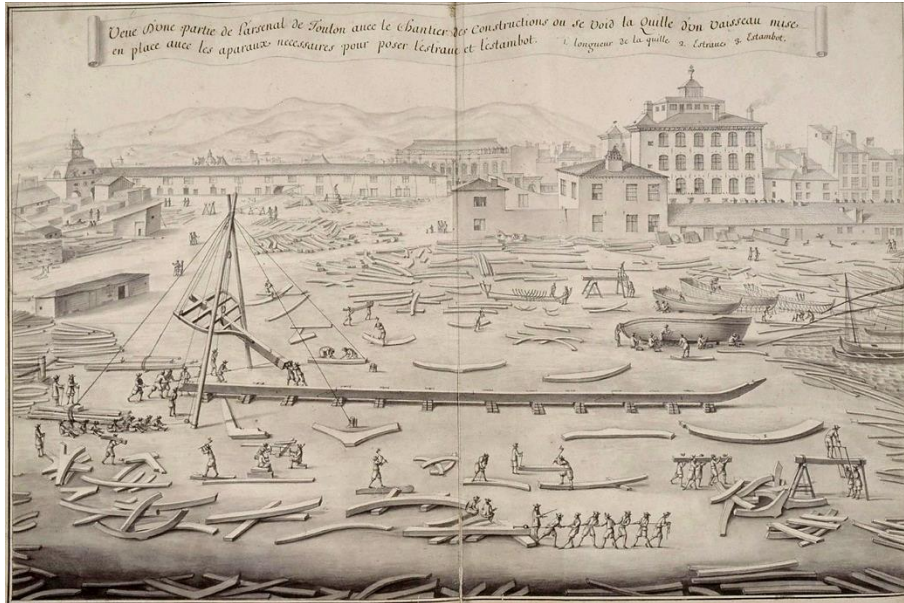 Veue D'vne partie de l'arsenal de Toulon avec le Chantier des Constructions ou se void la Quille d'vn Vaisseau mise
en place avec les aparaux necessaires pour poser l'estrave et l'estambot. 1. longueur de la quille 2. Estrave 3. Estambot.